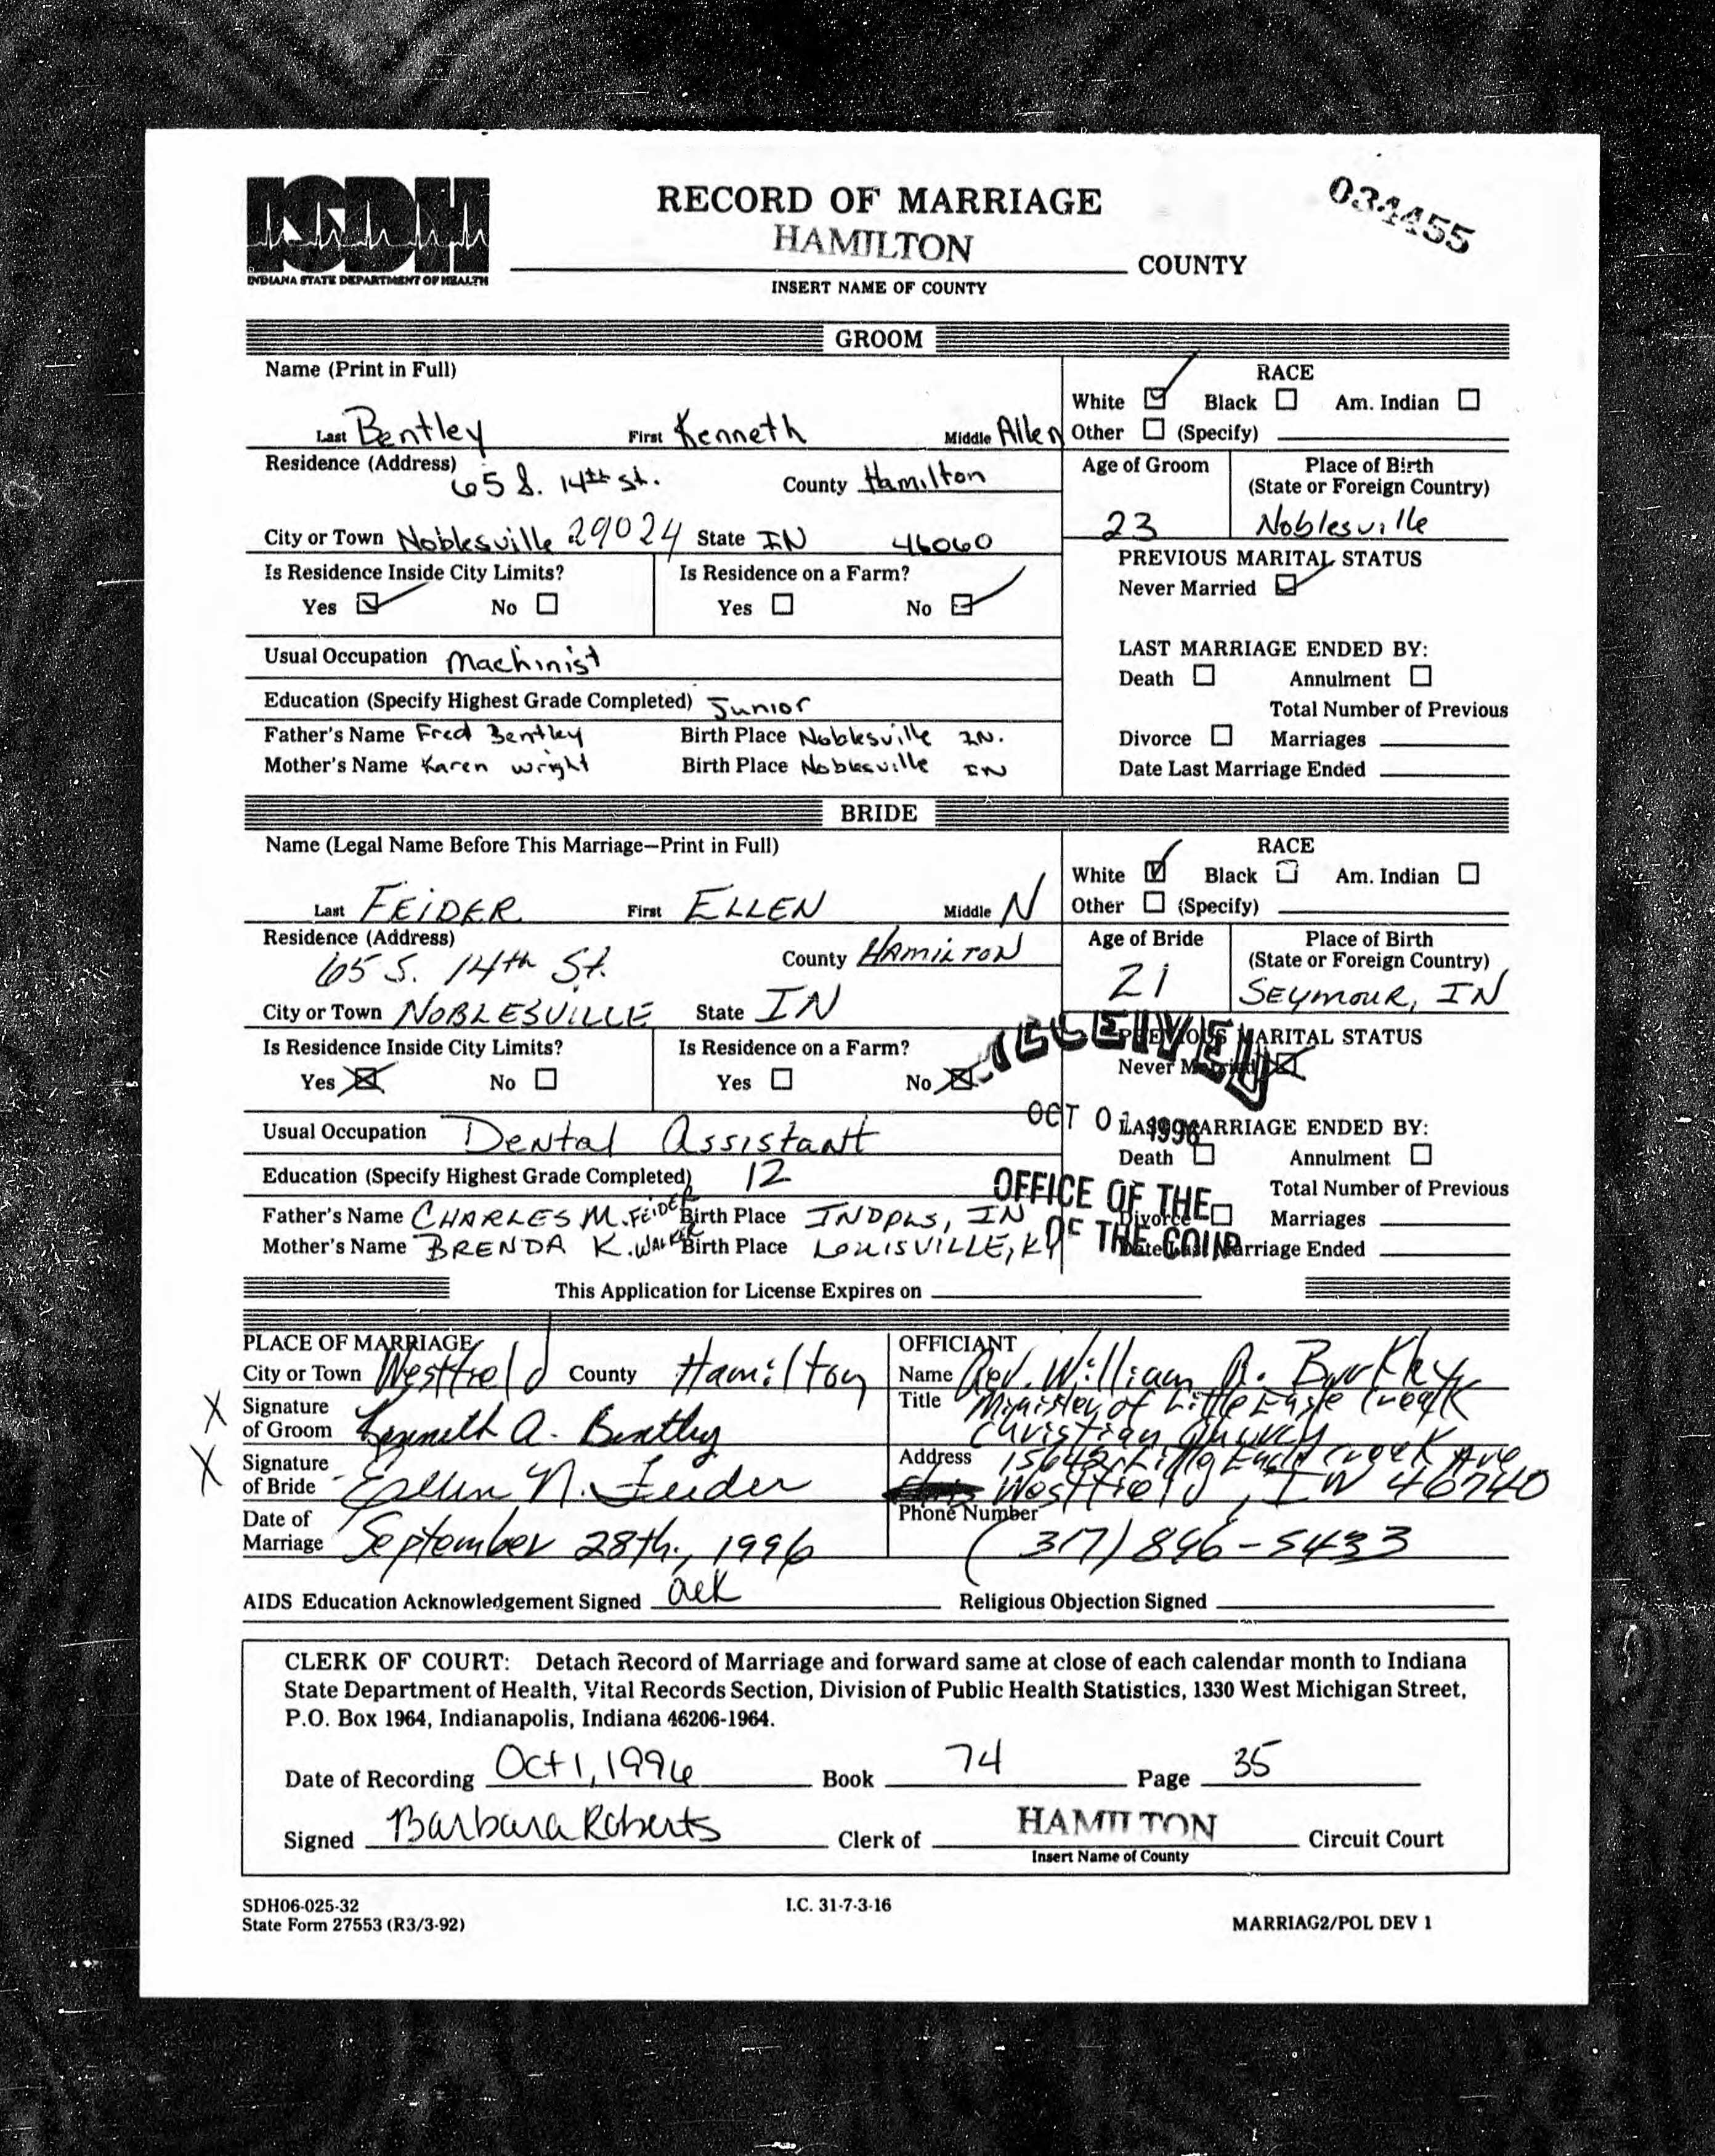 ISDH
INDIANA STATE DEPARTMENT OF HEALTH
RECORD OF MARRIAGE
034455
HAMILTON COUNTY
INSERT NAME OF COUNTY
GROOM
Name (Print in Full)
RACE
White ☑ Black ☐ Am. Indian ☐
Last Bentley First Kenneth Middle Allen
Other ☐ (Specify)
Residence (Address) 65 S. 14th st. County Hamilton
Age of Groom 23
Place of Birth
(State or Foreign Country)
Noblesville
City or Town Noblesville 29024 State IN 46060
PREVIOUS MARITAL STATUS
Never Married ☑
Is Residence Inside City Limits?
Yes ☑ No ☐
Is Residence on a Farm?
Yes ☐ No ☑
Usual Occupation Machinist
LAST MARRIAGE ENDED BY:
Death ☐ Annulment ☐
Education (Specify Highest Grade Completed) Junior
Total Number of Previous
Father's Name Fred Bentley Birth Place Noblesville IN.
Divorce ☐ Marriages
Mother's Name Karen Wright Birth Place Noblesville IN
Date Last Marriage Ended
BRIDE
Name (Legal Name Before This Marriage—Print in Full)
RACE
White ☑ Black ☐ Am. Indian ☐
Last FEIDER First ELLEN Middle N
Other ☐ (Specify)
Residence (Address)
65 S. 14th St. County HAMILTON
Age of Bride
21
Place of Birth
(State or Foreign Country)
SEYMOUR, IN
City or Town NOBLESVILLE State IN
PREVIOUS MARITAL STATUS
Never Married ☒
Is Residence Inside City Limits?
Yes ☒ No ☐
Is Residence on a Farm?
Yes ☐ No ☒
OCT 01 1996
Usual Occupation Dental Assistant
LAST MARRIAGE ENDED BY:
Death ☐ Annulment ☐
Education (Specify Highest Grade Completed) 12
OFFICE OF THE
Total Number of Previous
Father's Name CHARLES M. FEIDER Birth Place INDPLS, IN
Divorce ☐ Marriages
Mother's Name BRENDA K. WALKER Birth Place LOUISVILLE, KY
OF THE
Date Last Marriage Ended
This Application for License Expires on
PLACE OF MARRIAGE
City or Town Westfield County Hamilton
OFFICIANT
Name Rev. William A. Burkley
X Signature
of Groom Kenneth A. Bentley
Title Minister of Little Eagle Creek
Christian Church
X Signature
of Bride Ellen N. Feider
Address 15642 Little Eagle Creek Ave
Westfield, IN 46740
Date of
Marriage September 28th, 1996
Phone Number
(317) 896-5433
AIDS Education Acknowledgement Signed Religious Objection Signed
CLERK OF COURT: Detach Record of Marriage and forward same at close of each calendar month to Indiana
State Department of Health, Vital Records Section, Division of Public Health Statistics, 1330 West Michigan Street,
P.O. Box 1964, Indianapolis, Indiana 46206-1964.
Date of Recording Oct 1, 1996 Book 74 Page 35
Signed Barbara Roberts Clerk of HAMILTON Circuit Court
Insert Name of County
SDH06-025-32
State Form 27553 (R3/3-92)
I.C. 31-7-3-16
MARRIAG2/POL DEV 1